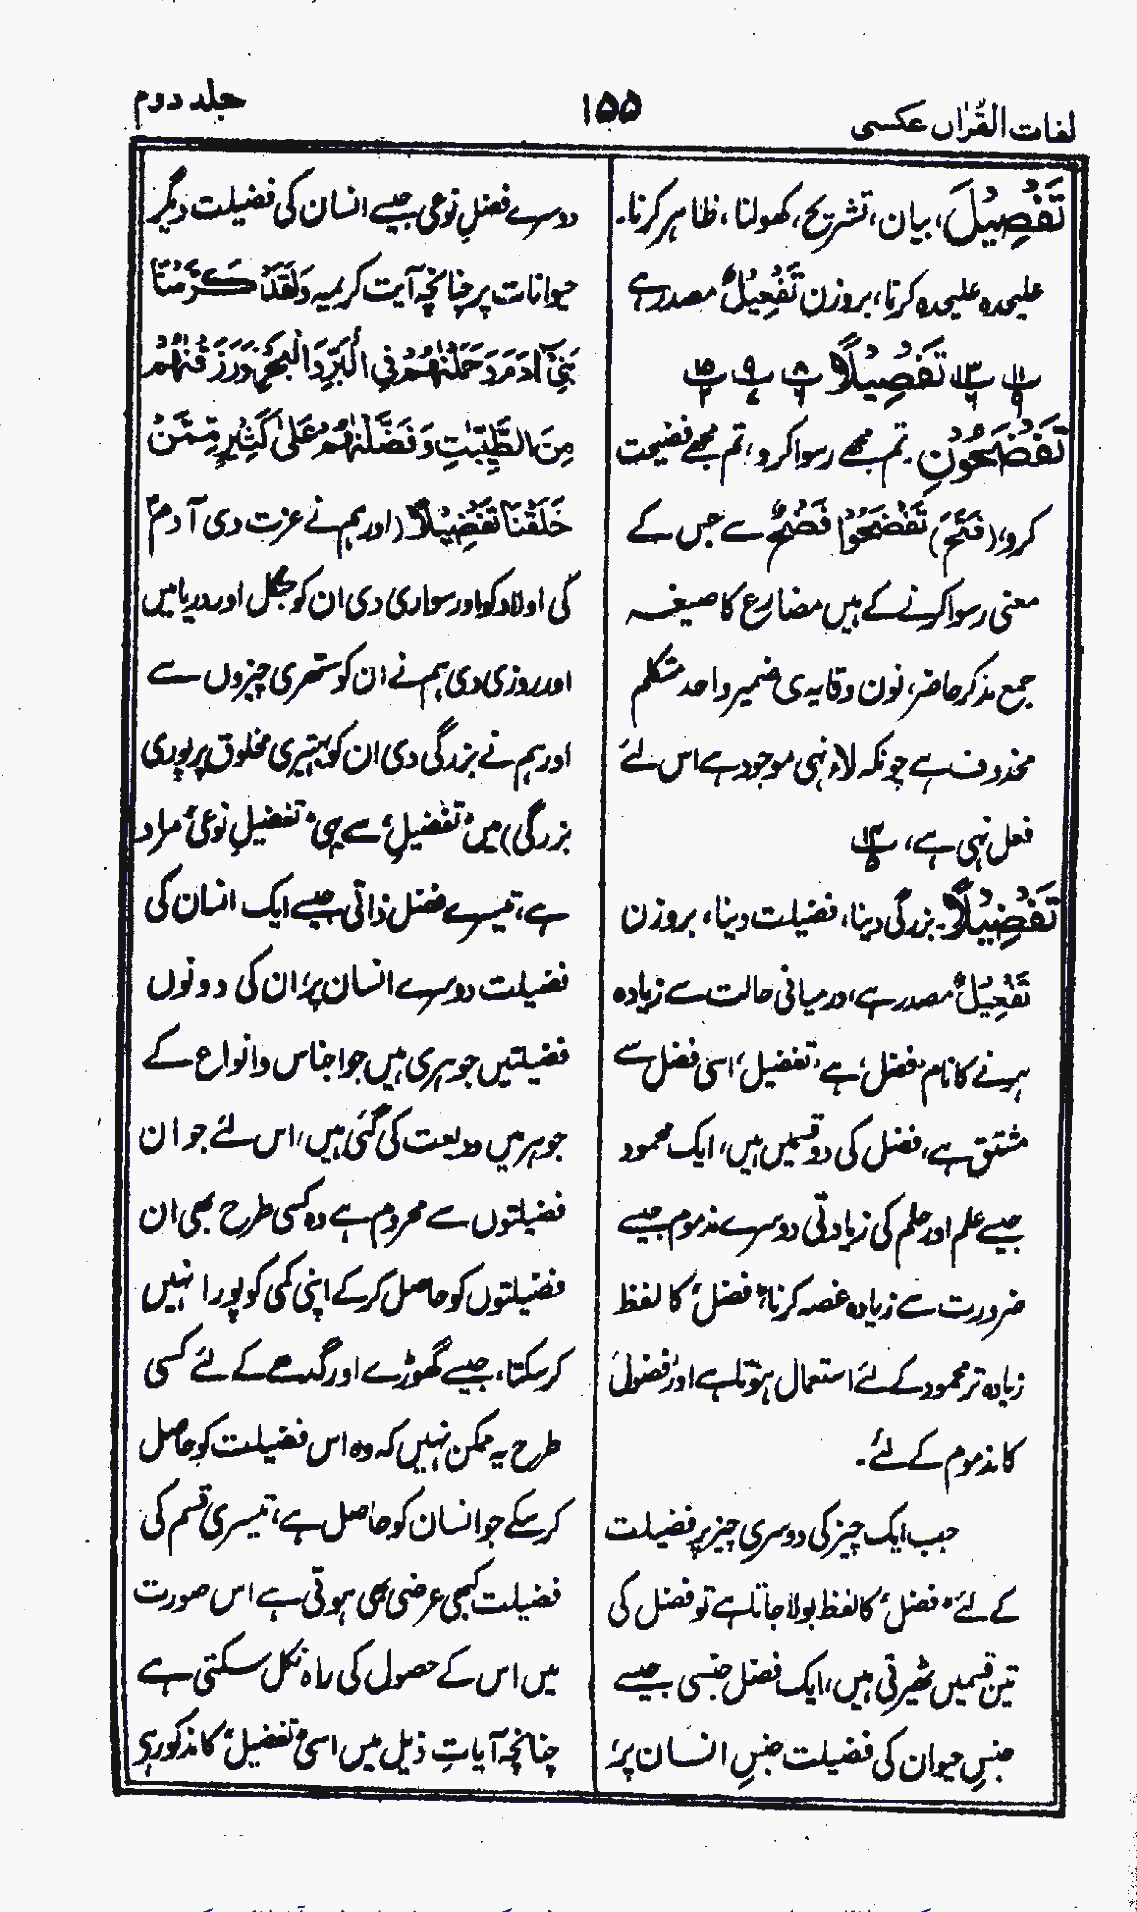 لغات القرآن عکسی
۱۵۵
جلد دوم
تَفْصِیْلَ، بیان، تشریح، کھولنا، ظاہر کرنا۔
علیحدہ علیحدہ کرنا، بروزن تَفْعِیْلٌ مصدر ہے
تَفْصِیْلًا
تَفْضَحُوْنِ۔ تم مجھے رسوا کرو، تم مجھے فضیحت
کرو، (فَتَحَ) تَفْضَحُوْا فَضْحٌ سے جس کے
معنی رسوا کرنے کے ہیں مضارع کا صیغہ
جمع مذکر حاضر، نون وقایہ ی ضمیر واحد متکلم
محذوف ہے چونکہ لاء نہی موجود ہے اس لئے
فعل نہی ہے،
تَفْضِیْلًا۔ بزرگی دینا، فضیلت دینا، بروزن
تَفْعِیْلٌ مصدر ہے، درمیانی حالت سے زیادہ
ہونے کا نام "فضل" ہے "تفضیل" اسی فضل سے
مشتق ہے، فضل کی دو قسمیں ہیں، ایک محمود
جیسے علم اور حلم کی زیادتی دوسرے مذموم جیسے
ضرورت سے زیادہ غصہ کرنا، "فضل" کا لفظ
زیادہ تر محمود کے لئے استعمال ہوتا ہے اور فضول
کا مذموم کے لئے۔
جب ایک چیز کی دوسری چیز پر فضیلت
کے لئے "فضل" کا لفظ بولا جاتا ہے تو فضل کی
تین قسمیں ٹھیرتی ہیں، ایک فضل جنسی جیسے
جنسِ حیوان کی فضیلت جنسِ انسان پر،
دوسرے فضلِ نوعی جیسے انسان کی فضیلت دیگر
حیوانات پر چنانچہ آیت کریمہ وَلَقَدْ کَرَّمْنَا
بَنِیْٓ اٰدَمَ وَحَمَلْنٰهُمْ فِی الْبَرِّ وَالْبَحْرِ وَرَزَقْنٰهُمْ
مِنَ الطَّیِّبٰتِ وَفَضَّلْنٰهُمْ عَلٰی کَثِیْرٍ مِّمَّنْ
خَلَقْنَا تَفْضِیْلًا (اور ہم نے عزت دی آدمؑ
کی اولاد کو اور سواری دی ان کو جنگل اور دریا میں
اور روزی دی ہم نے ان کو ستھری چیزوں سے
اور ہم نے بزرگی دی ان کو بہتیری مخلوق پر پوری
بزرگی) میں "تفضیلِ" سے یہی "تفضیلِ نوعی" مراد
ہے، تیسرے فضل ذاتی جیسے ایک انسان کی
فضیلت دوسرے انسان پر، ان کی دونوں
فضیلتیں جوہری ہیں جو اجناس و انواع کے
جوہر میں ودیعت کی گئی ہیں، اس لئے جو ان
فضیلتوں سے محروم ہے وہ کسی طرح بھی ان
فضیلتوں کو حاصل کر کے اپنی کمی کو پورا نہیں
کر سکتا، جیسے گھوڑے اور گدھے کے لئے کسی
طرح یہ ممکن نہیں کہ وہ اس فضیلت کو حاصل
کر سکے جو انسان کو حاصل ہے، تیسری قسم کی
فضیلت کبھی عرضی بھی ہوتی ہے اس صورت
میں اس کے حصول کی راہ نکل سکتی ہے
چنانچہ آیاتِ ذیل میں اسی "تفضیل" کا مذکور ہے